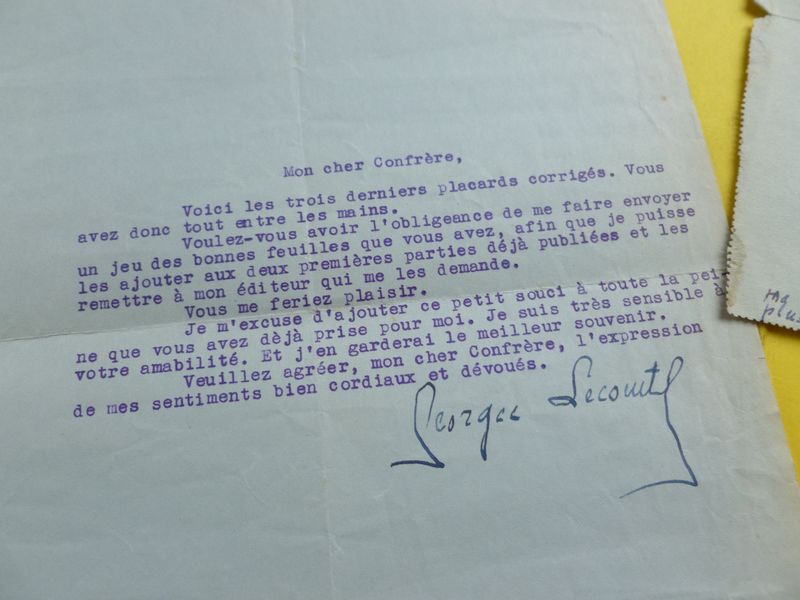 Mon cher Confrère,
Voici les trois derniers placards corrigés. Vous
avez donc tout entre les mains.
Voulez-vous avoir l'obligeance de me faire envoyer
un jeu des bonnes feuilles que vous avez, afin que je puisse
les ajouter aux deux premières parties déjà publiées et les
remettre à mon éditeur qui me les demande.
Vous me feriez plaisir.
Je m'excuse d'ajouter ce petit souci à toute la pei-
ne que vous avez dèjà prise pour moi. Je suis très sensible à
votre amabilité. Et j'en garderai le meilleur souvenir.
Veuillez agréer, mon cher Confrère, l'expression
de mes sentiments bien cordiaux et dévoués.
Georges Lecomte
plus